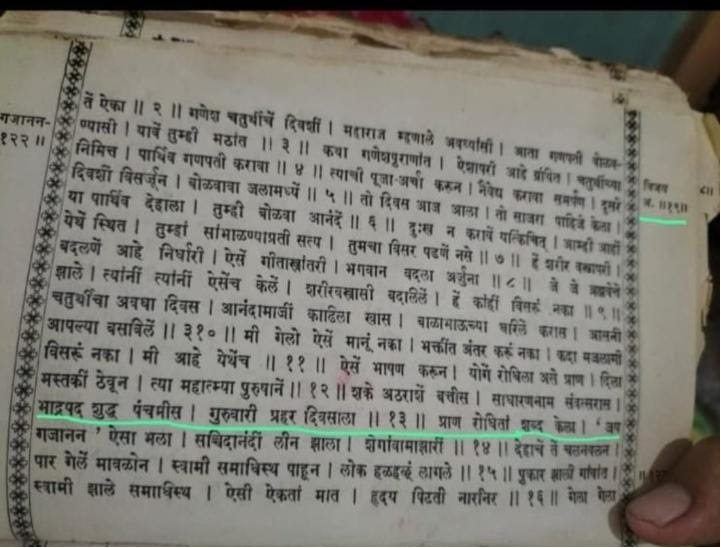 गजानन-
१२२ ॥
विजय
अ. ॥१९॥
तें ऐका ॥ २ ॥ गणेश चतुर्थीचें दिवशीं । महाराज म्हणाले अवघ्यांसी । आता गणपती बोळव-
ण्यासी । यावें तुम्ही मठांत ॥ ३ ॥ कथा गणेशपुराणांत । ऐशापरी आहे ग्रंथित । चतुर्थीच्या
निमित्त । पार्थिव गणपती करावा ॥ ४ ॥ त्याची पूजा-अर्चा करून । नैवेद्य करावा समर्पण । दुसरे
दिवशीं विसर्जून । बोळवावा जलामध्यें ॥ ५ ॥ तो दिवस आज आला । तो साजरा पाहिजे केला ।
या पार्थिव देहाला । तुम्ही बोळवा आनंदें ॥ ६ ॥ दुःख न करावें यत्किंचित् । आम्ही आहों
येथें स्थित । तुम्हां सांभाळण्याप्रती सत्य । तुमचा विसर पडणें नसे ॥ ७ ॥ हें शरीर वस्त्रापरी ।
बदलणें आहे निर्धारी । ऐसें गीताशास्त्रांतरी । भगवान वदला अर्जुना ॥ ८ ॥ जे जे ब्रह्मवेत्ते
झाले । त्यांनीं त्यांनीं ऐसेंच केलें । शरीरवस्त्रासी बदलिलें । हें कांहीं विसरूं नका ॥ ९ ॥
चतुर्थीचा अवघा दिवस । आनंदामाजीं काढिला खास । बाळाभाऊच्या धरिलें करास । आसनी
आपल्या बसविलें ॥ ३१० ॥ मी गेलो ऐसें मानूं नका । भक्तींत अंतर करूं नका । कदा मजलागी
विसरूं नका । मी आहे येथेंच ॥ ११ ॥ ऐसें भाषण करून । योगें रोधिला असे प्राण । दिला
मस्तकीं ठेवून । त्या महात्म्या पुरुषानें ॥ १२ ॥ शके अठराशें बत्तीस । साधारणनाम संवत्सरास ।
भाद्रपद शुद्ध पंचमीस । गुरुवारी प्रहर दिवसाला ॥ १३ ॥ प्राण रोधितां शब्द केला । ' जय
गजानन ' ऐसा भला । सच्चिदानंदीं लीन झाला । शेगांवामाझारीं ॥ १४ ॥ देहाचें तें चलनवलन ।
पार गेलें मावळोन । स्वामी समाधिस्थ पाहून । लोक हळहळूं लागले ॥ १५ ॥ पुकार झाली गांवांत ।
स्वामी झाले समाधिस्थ । ऐसी ऐकतां मात । हृदय पिटती नारनिर ॥ १६ ॥ गेला गेला